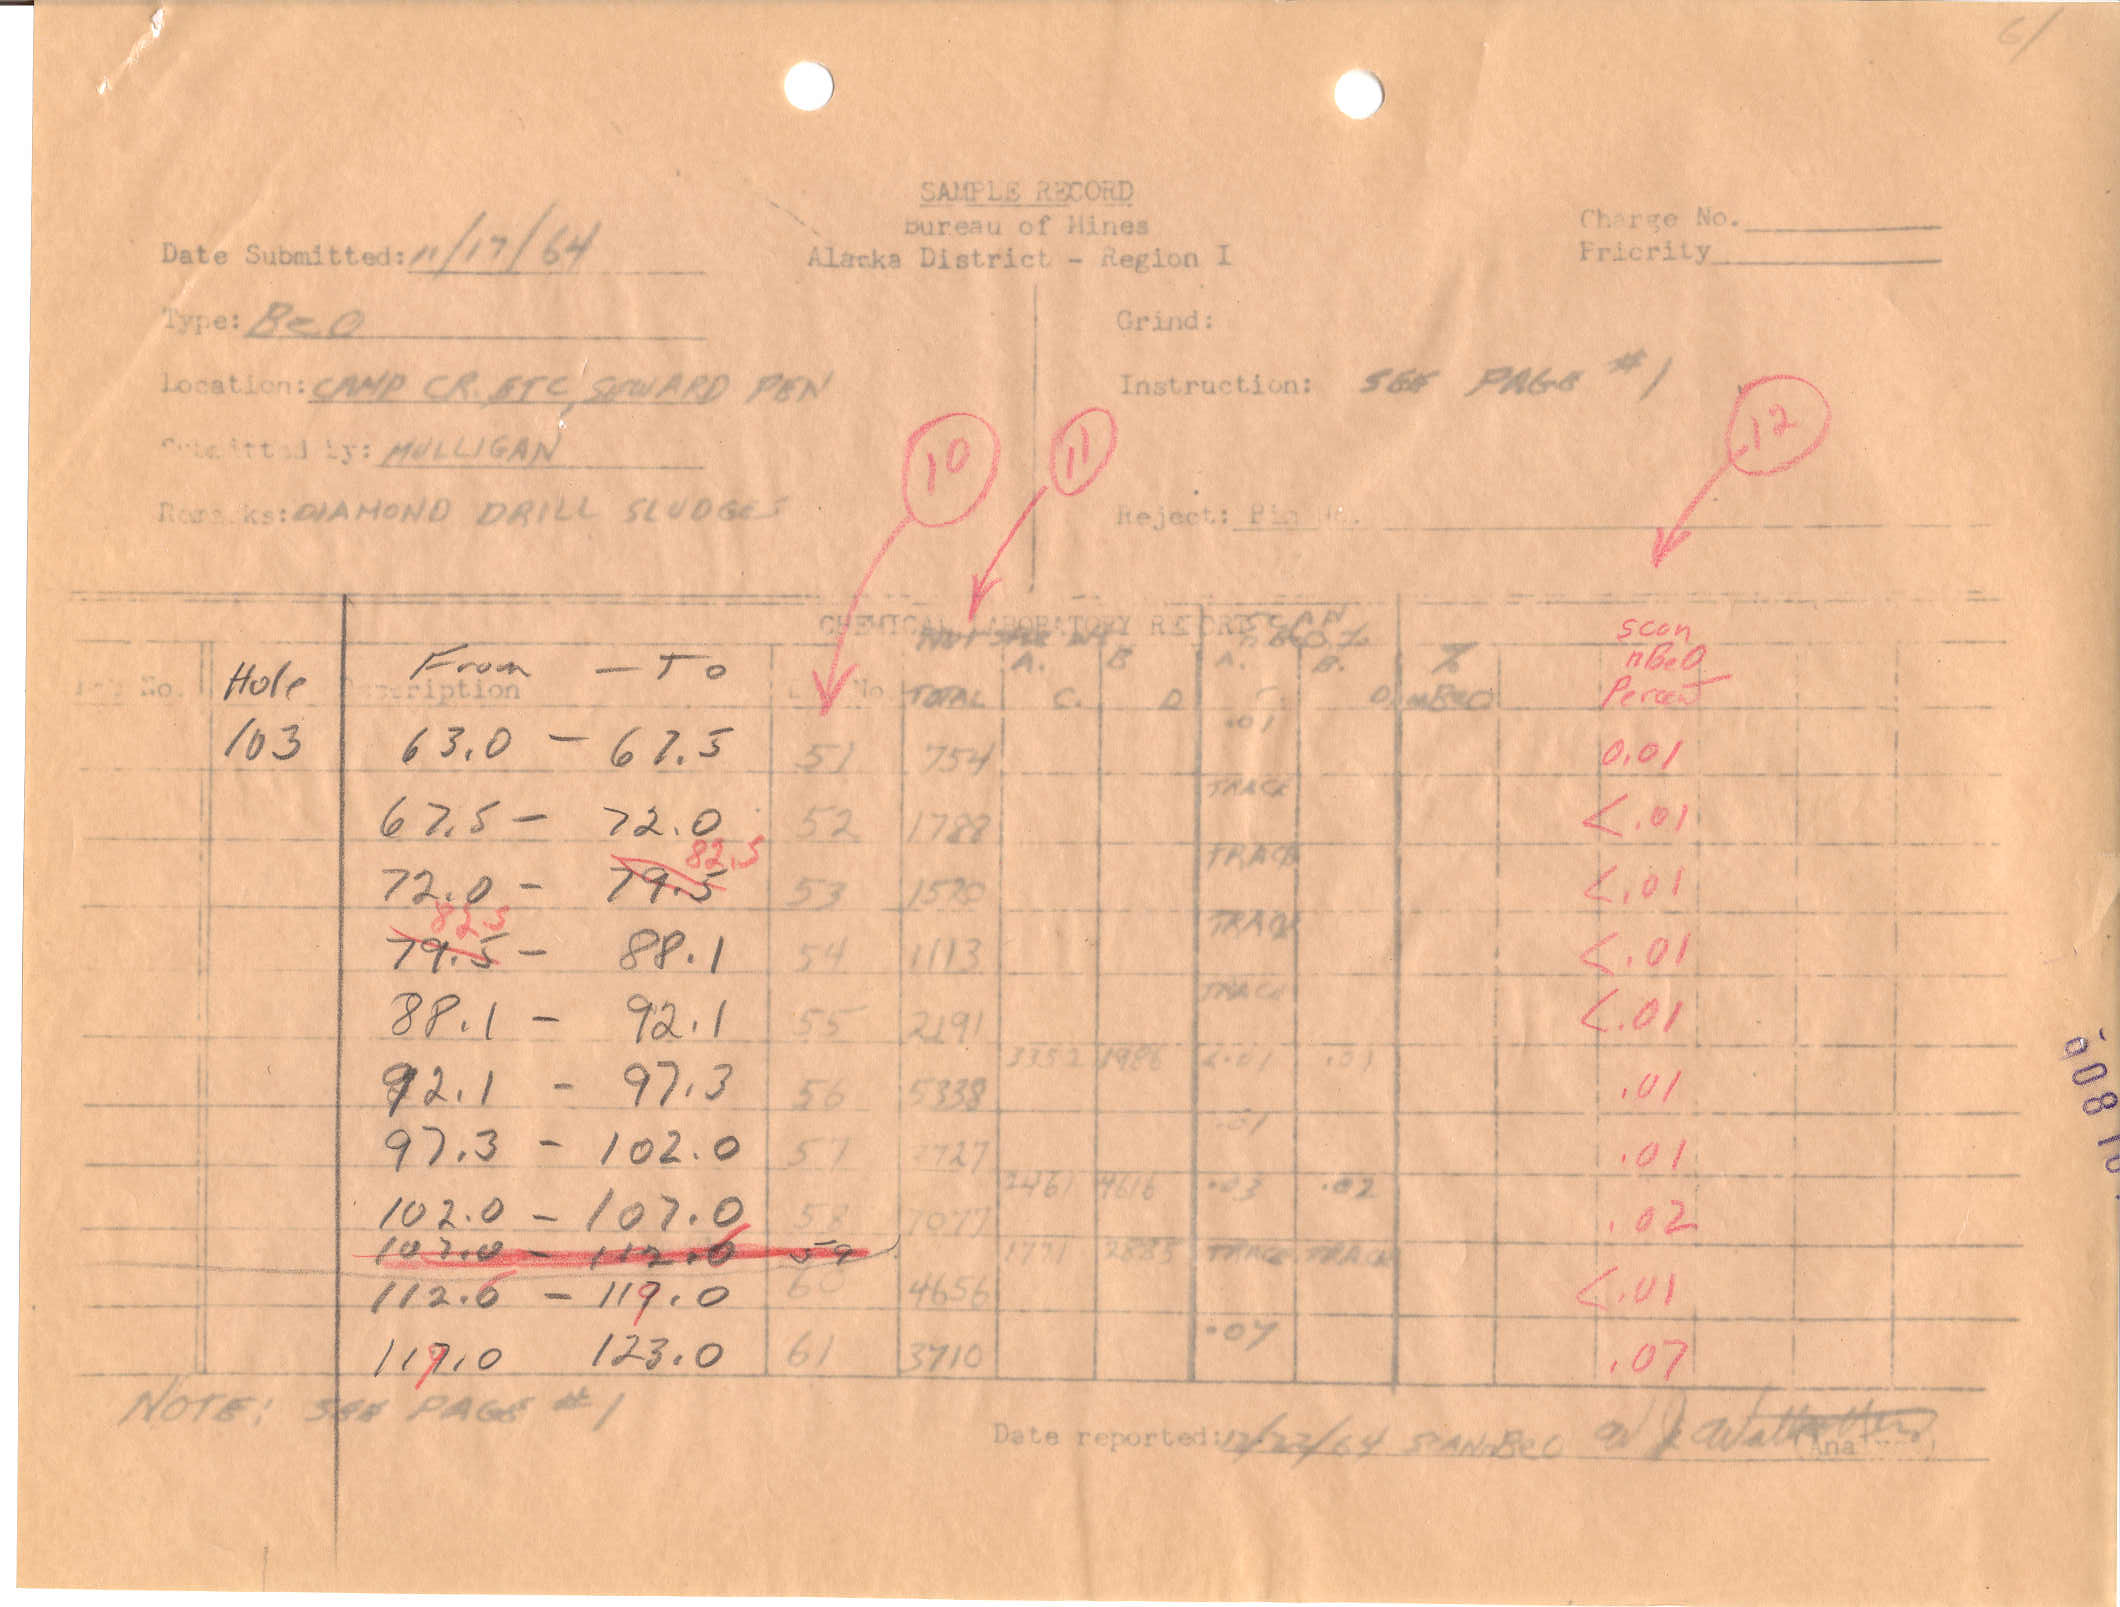 61
SAMPLE RECORD
Bureau of Mines
Alaska District - Region I
Charge No.
Priority
Date Submitted: 11/17/64
Type: BeO
Grind:
Location: CAMP CR. ETC, SEWARD PEN
Instruction: SEE PAGE #1
Submitted by: MULLIGAN
Remarks: DIAMOND DRILL SLUDGES
Reject:
10 11 12
CHEMICAL LABORATORY RECORD
SCAN
BeO %
A. B A. B.
TOTAL C. D C. D. % nBeO
No. Hole Description From - To No.
scan
nBeO
Percent
.01
103 63.0 - 67.5 51 754 0.01
TRACE
67.5 - 72.0 52 1788 <.01
82.5 TRACE
72.0 - 79.5 53 1520 <.01
82.5 TRACE
79.5 - 88.1 54 1113 <.01
TRACE
88.1 - 92.1 55 2191 <.01
3352 1986 <.01 .01
92.1 - 97.3 56 5338 .01
.01
97.3 - 102.0 57 .01
2461 4616 .03 .02
102.0 - 107.0 58 7077 .02
107.0 - 112.6 59
1771 2885 TRACE TRACE
112.6 - 119.0 60 4656 <.01
.07
119.0 123.0 61 3710 .07
NOTE: SEE PAGE #1
Date reported: 12/22/64 SCAN BeO